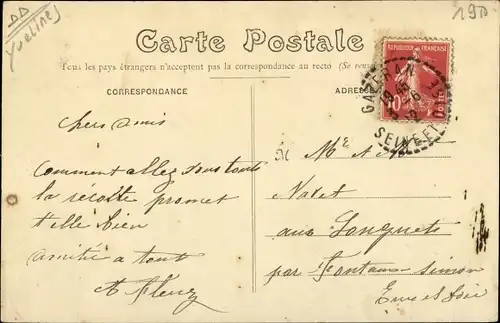 Yvelines
190
Carte Postale
Tous les pays étrangers n'acceptent pas la correspondance au recto (Se rens
CORRESPONDANCE
ADRES
REPUBLIQUE FRANÇAISE
10
GAZERAN
SEINE ET
19 45
Chers amis
Comment allez vous tous
la récolte promet
t elle bien
amitié a tout
A Fleury
Navet
aux Longuets
par Fontaine Simon
Eure et Loir